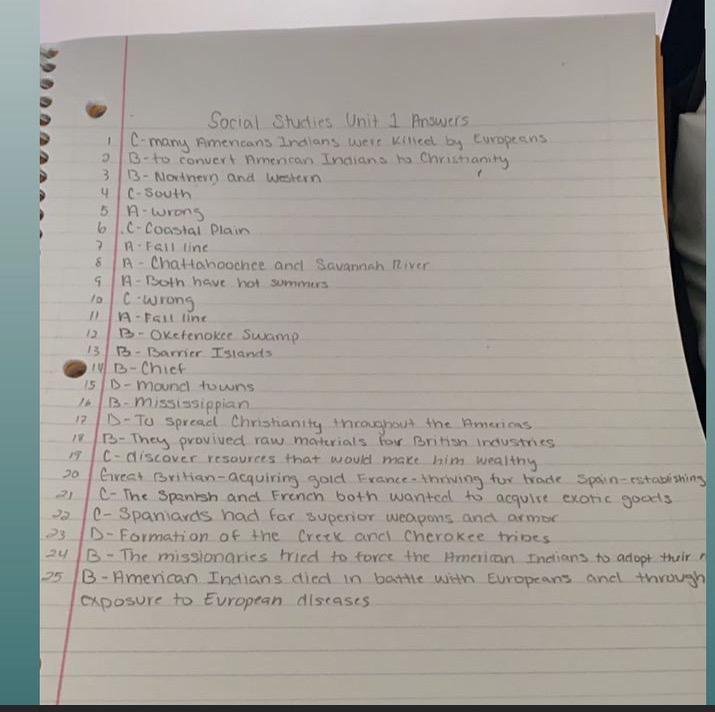 Social Studies Unit 1 Answers
1 C-many Americans Indians were killed by Europeans
2 B-to convert American Indians to Christianity
3 B-Northern and Western
4 C-South
5 A-wrong
6 .C-Coastal Plain
7 A-Fall line
8 A-Chattahoochee and Savannah River
9 A-Both have hot summers
10 C-wrong
11 A-Fall line
12 B-Okefenokee Swamp
13 B-Barrier Islands
14 B-Chief
15 D-mound towns
16 B-mississippian
17 D-To spread Christianity throughout the Americas
18 B-They provived raw materials for British industries
19 C-discover resources that would make him wealthy
20 Great Britian-acquiring gold France-thriving fur trade Spain-establishing
21 C-The Spanish and French both wanted to acquire exotic goods
22 C-Spaniards had far superior weapons and armor
23 D-Formation of the Creek and Cherokee tribes
24 B-The missionaries tried to force the American Indians to adopt their
25 B-American Indians died in battle with Europeans and through
exposure to European diseases